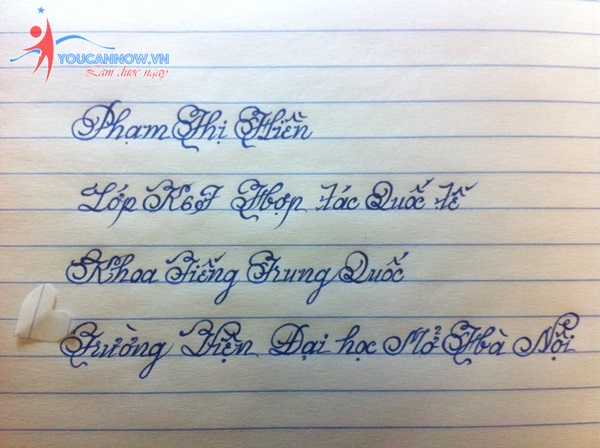 YOUCANNOW.VN
Làm được ngay
Phạm Thị Hiền
Lớp K6F Hợp tác Quốc tế
Khoa Tiếng Trung Quốc
Trường Viện Đại học Mở Hà Nội